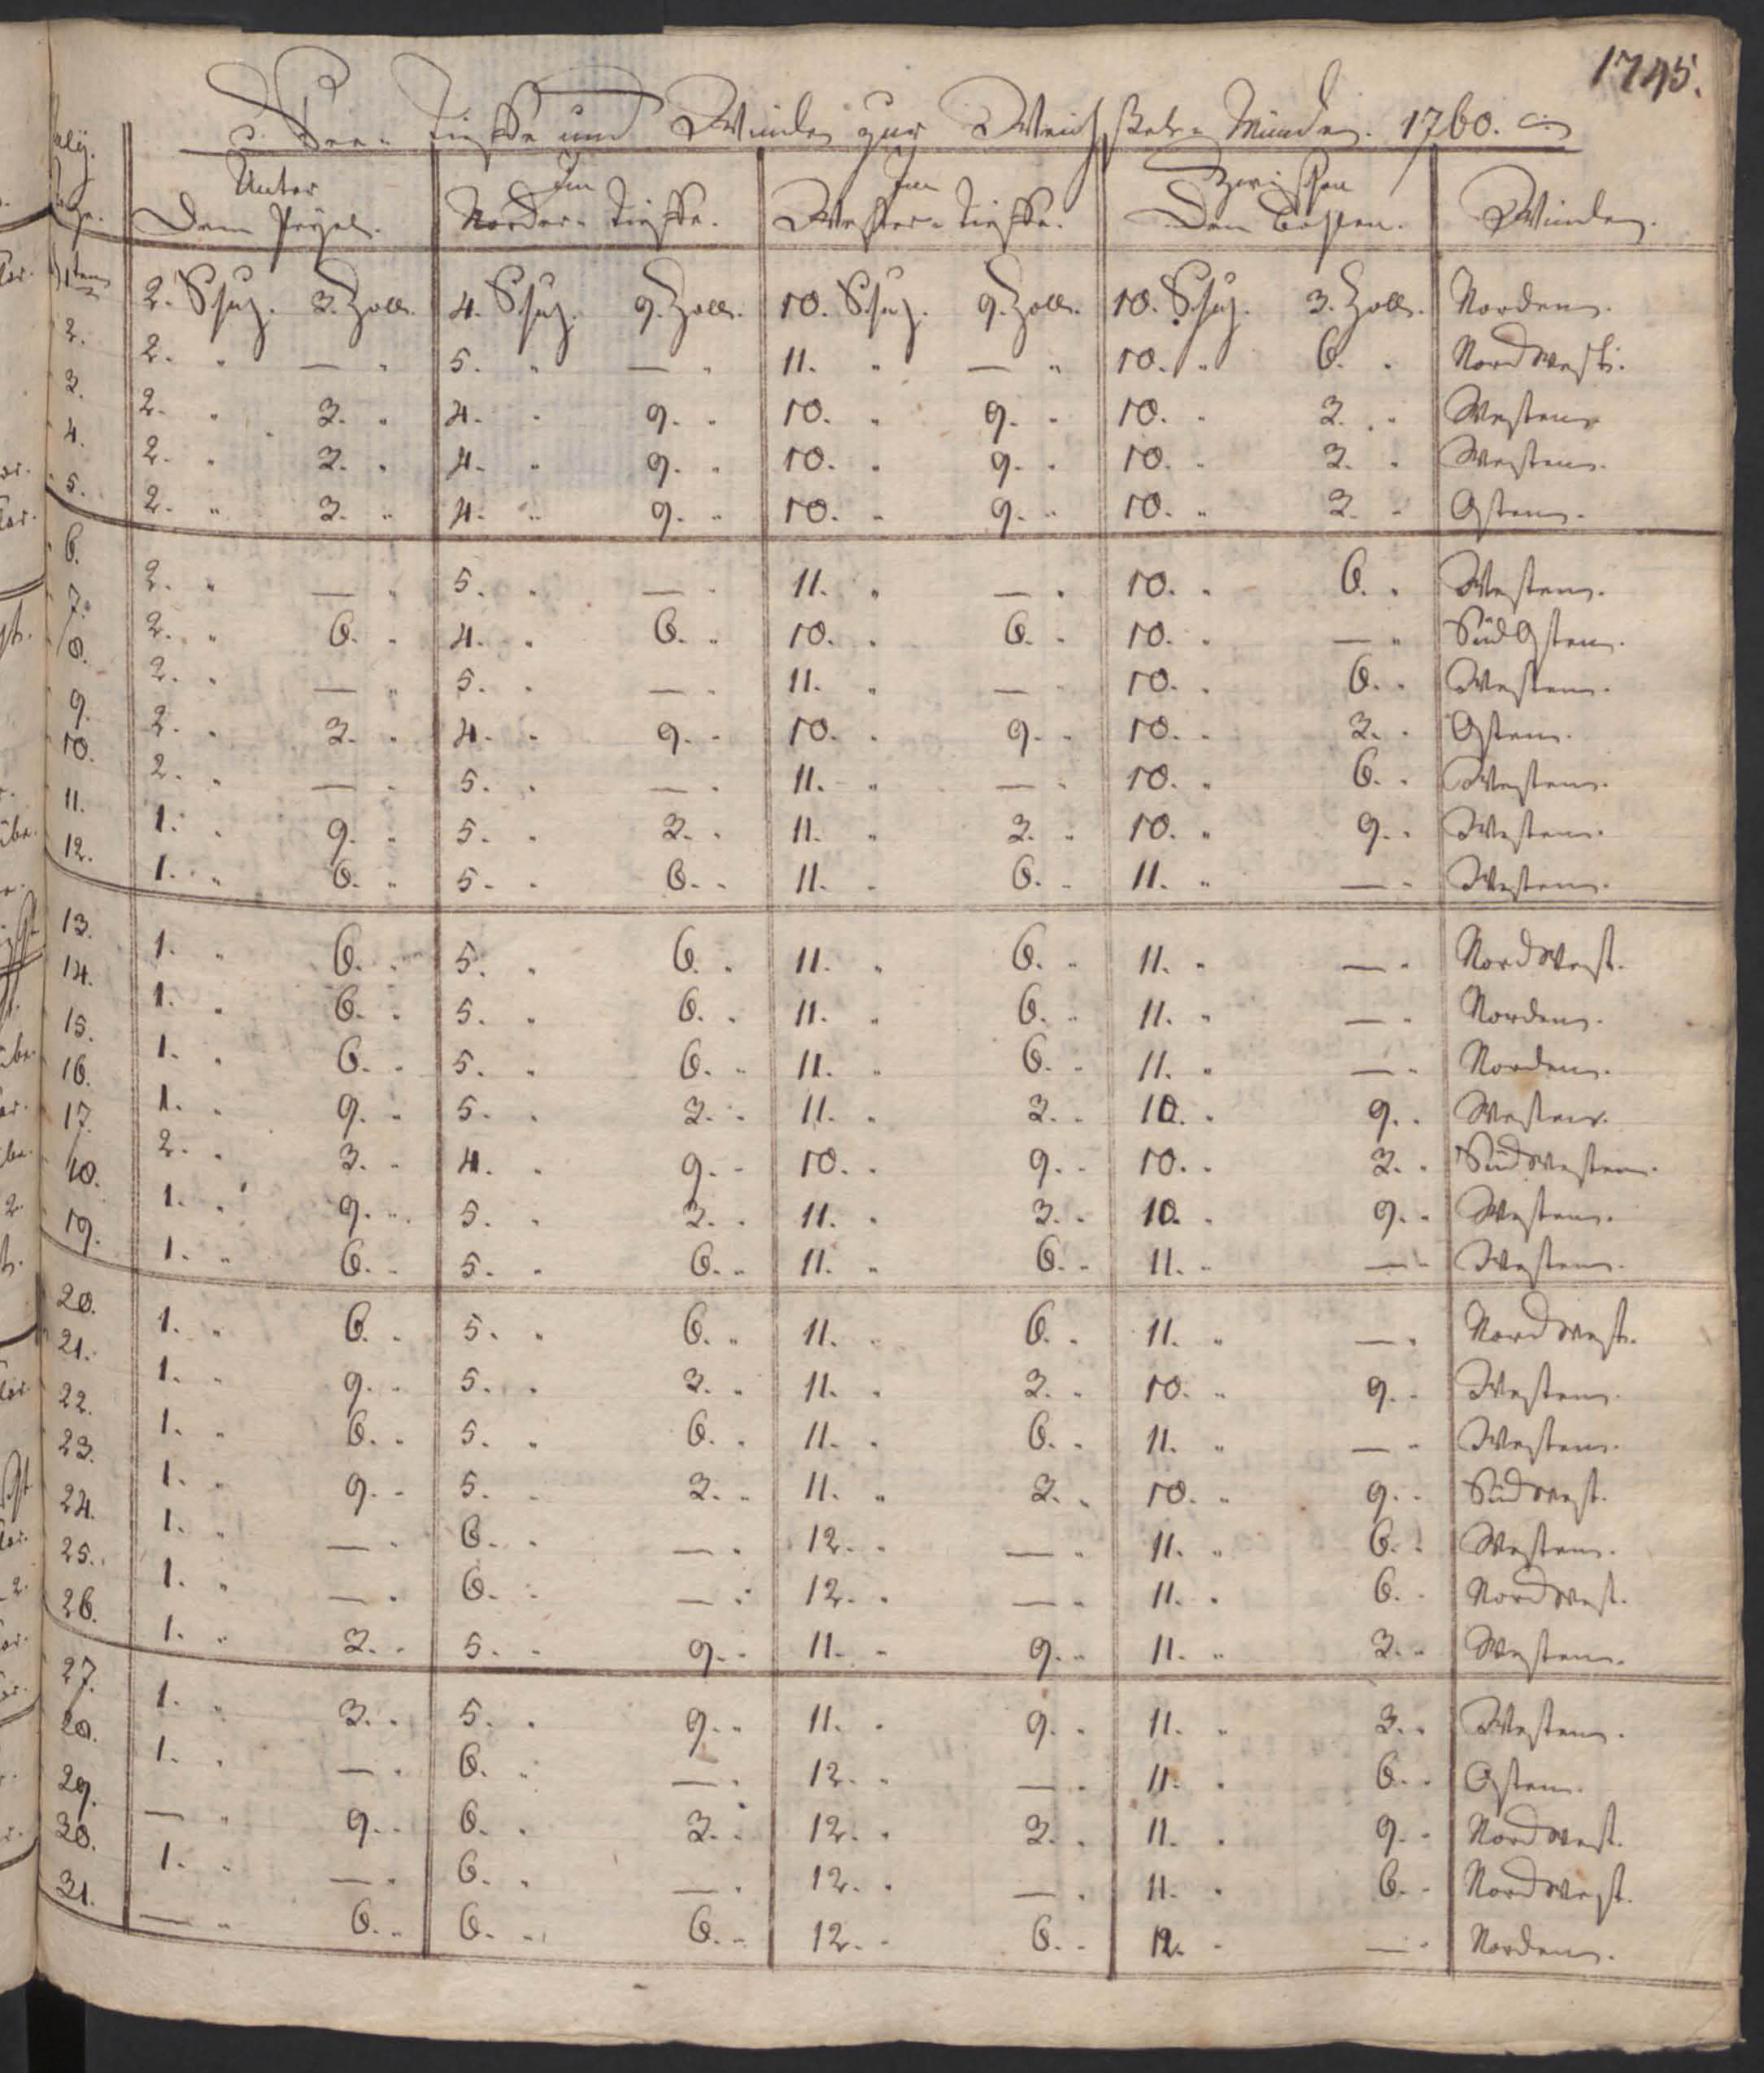 1745.
See-Tieffe und Winde zur Weichselmünde. 1760.
Unter dem Pegel. Im Norder-Tieffe. Im Wester-Tieffe. Zwischen den Winde.
1ten 2. Schu. 3. Zoll. 4. Schu. 9. Zoll. 10. Schu. 9. Zoll. 10. Schu. 3. Zoll. Norden.
2. 2. " — " 5. " — " 11. " — " 10. " 6. " Nordwest.
3. 2. " 3. " 4. " 9. " 10. " 9. " 10. " 3. " Westen.
4. 2. " 3. " 4. " 9. " 10. " 9. " 10. " 3. " Westen.
5. 2. " 3. " 4. " 9. " 10. " 9. " 10. " 3. " Osten.
6. 2. " — " 5. " — " 11. " — " 10. " 6. " Westen.
7. 2. " 6. " 4. " 6. " 10. " 6. " 10. " — " SüdOsten.
8. 2. " — " 5. " — " 11. " — " 10. " 6. " Westen.
9. 2. " 3. " 4. " 9. " 10. " 9. " 10. " 3. " Osten.
10. 2. " — " 5. " — " 11. " — " 10. " 6. " Westen.
11. 1. " 9. " 5. " 3. " 11. " 3. " 10. " 9. " Westen.
12. 1. " 6. " 5. " 6. " 11. " 6. " 11. " — " Westen.
13. 1. " 6. " 5. " 6. " 11. " 6. " 11. " — " Nordwest.
14. 1. " 6. " 5. " 6. " 11. " 6. " 11. " — " Norden.
15. 1. " 6. " 5. " 6. " 11. " 6. " 11. " — " Norden.
16. 1. " 9. " 5. " 3. " 11. " 3. " 10. " 9. " Westen.
17. 2. " 3. " 4. " 9. " 10. " 9. " 10. " 3. " Südwesten.
18. 1. " 9. " 5. " 3. " 11. " 3. " 10. " 9. " Westen.
19. 1. " 6. " 5. " 6. " 11. " 6. " 11. " — " Westen.
20. 1. " 6. " 5. " 6. " 11. " 6. " 11. " — " Nordwest.
21. 1. " 9. " 5. " 3. " 11. " 3. " 10. " 9. " Westen.
22. 1. " 6. " 5. " 6. " 11. " 6. " 11. " — " Westen.
23. 1. " 9. " 5. " 3. " 11. " 3. " 10. " 9. " Südwest.
24. 1. " — " 6. " — " 12. " — " 11. " 6. " Westen.
25. 1. " — " 6. " — " 12. " — " 11. " 6. " Nordwest.
26. 1. " 3. " 5. " 9. " 11. " 9. " 11. " 3. " Westen.
27. 1. " 3. " 5. " 9. " 11. " 9. " 11. " 3. " Westen.
28. 1. " — " 6. " — " 12. " — " 11. " 6. " Osten.
29. — " 9. " 6. " 3. " 12. " 3. " 11. " 9. " Nordwest.
30. 1. " — " 6. " — " 12. " — " 11. " 6. " Nordwest.
31. — " 6. " 6. " 6. " 12. " 6. " 12. " — " Norden.